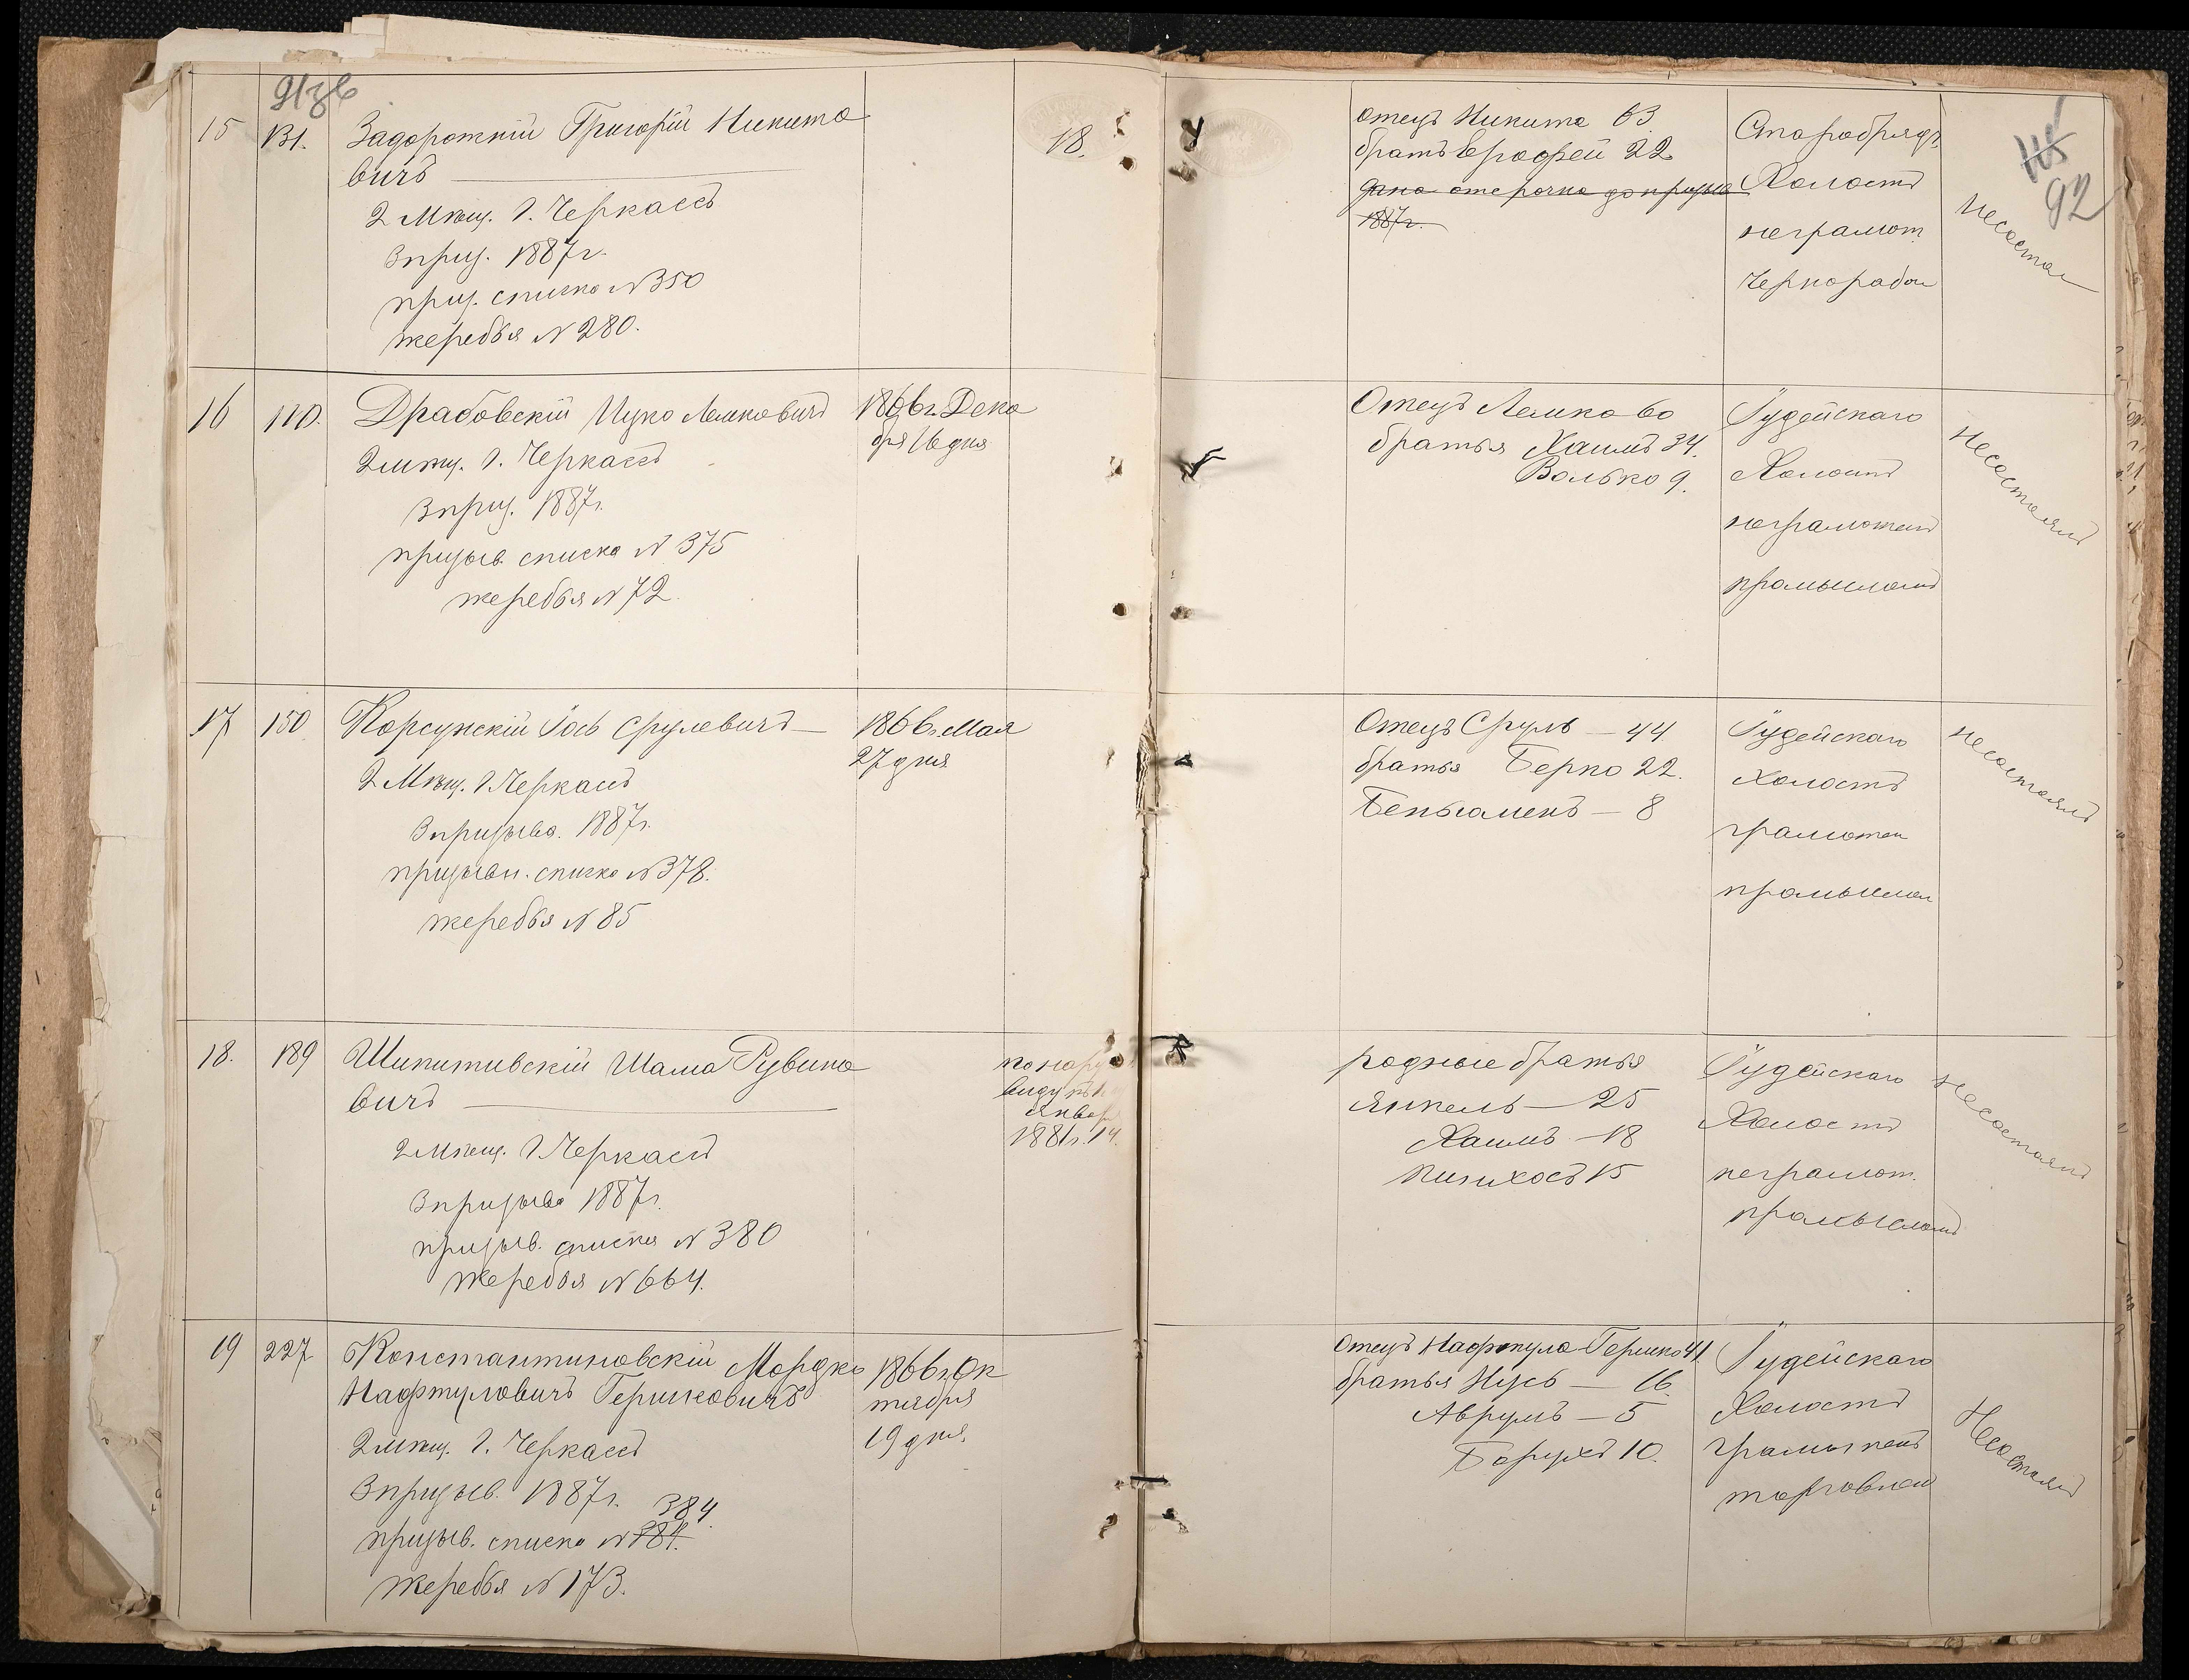 15
131.
Задорожній Григорій Никито
вичъ
2 Мѣщ. г. Черкассъ
Зприз. 1887г.
приз. списка N350
жеребья N 280.
18.
отецъ Никита 63
братъ Ерофей 22
дана отсрочка до призыва
1887г.
Старобрядъ
Холостъ
неграмот
Чернорабоч
Несостоя
115
92
16
110.
Драбовскій Ицко Лейковичъ
2мѣщ. г. Черкассъ
Зприз. 1887г.
призыв. списка N 375
жеребья N 72
1866г. Дека
бря 16 дня
Отецъ Лейко 60
братья Хаимъ 34.
Волько 9.
Іудейскаго
Холостъ
неграмотенъ
промысломъ
Несостоялъ
17
150
Корсунскій Іось Срулевичъ
2 Мѣщ. г Черкассъ
Зпризыва. 1887г.
призывн. списка N 378.
жеребья N 85
1866г. Мая
27 дня
Отецъ Сруль — 44
братья Берко 22.
Беньяменъ — 8
Іудейскаго
холостъ
грамотен
промыслом
Несостоялъ
18.
189
Шипитивскій Шама Рувино
вичъ
2Мѣщ. г Черкассъ
Зпризыва 1887г.
призыв. списка N 380
жеребья N 664.
по нару
виду
Январ
1881г. 14.
родные братья
Янкель — 25
Хаимъ — 18
Пинхосъ 15
Іудейскаго
Холостъ
неграмот.
промысломъ
Несостоялъ
19
227
Константиновскій Мордко
Нафтуловичъ Гершковичъ
2мѣщ. г. Черкассъ
Зпризыв. 1887г.
384.
призыв. списка N 384.
жеребья N 173.
1866г. Ок
тября
19 дня.
Отецъ Нафтула-Гершко 41
братья Нусь — 16.
Аврумъ — 5
Борухъ 10.
Іудейскаго
Холостъ
грамотенъ
торговлей
Несостоялъ